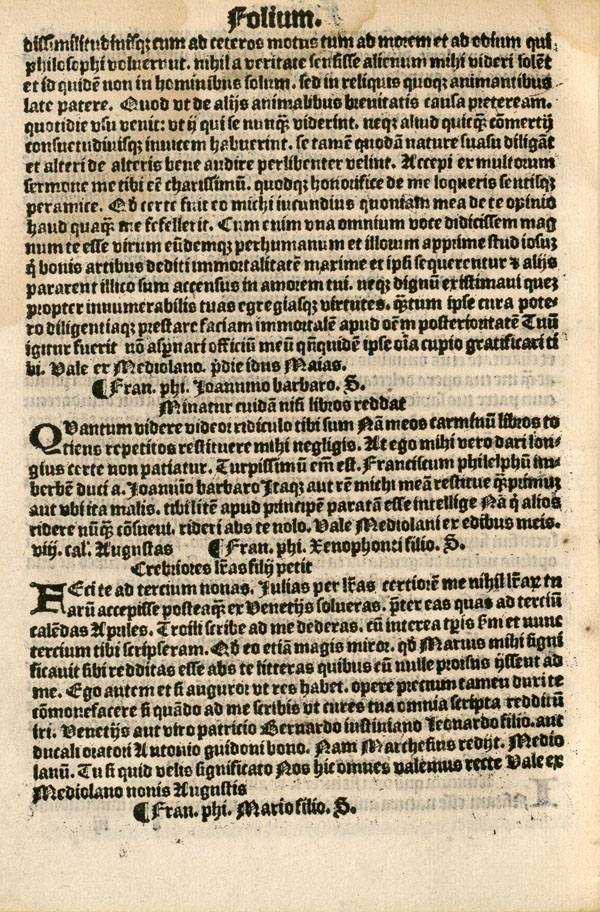 Folium.
dissimilitudinisqꝫ cum ad ceteros motus tum ad morem et ad odium qui
philosophi voluerunt. nihil a veritate sensisse alienum mihi videri solēt
et id quidē non in hominibus solum. sed in reliquis quoqꝫ animantibus
late patere. Quod vt de alijs animalibus breuitatis causa preteream.
quotidie vsu venit: vt ij qui se nunqꝫ viderint. neqꝫ aliud quicqꝫ cōmertij
consuetudinisqꝫ inuicem habuerint. se tamē quodā nature suasu diligāt
et alteri de alteris bene audire perlibenter velint. Accepi ex multorum
sermone me tibi eē charissimū. quodqꝫ honorifice de me loqueris sentisqꝫ
peramice. Qď certe fuit eo michi iucundius quoniam mea de te opinio
haud quaqꝫ me fefellerit. Cum enim vna omnium voce didicissem mag
num te esse virum eūdemqꝫ perhumanum et illorum apprime studiosuꝫ
q̇ bonis artibus dediti immortalitatē maxime et ipsi sequerentur ⁊ alijs
pararent illico sum accensus in amorem tui. neqꝫ dignū existimaui queꝫ
propter innumerabilis tuas egregiasqꝫ virtutes. qꝫtum ipse cura pote/
ro diligentiaqꝫ prestare faciam immortalē apud oēm posterioritatē Tuū
igitur fuerit nō aspnari officiū meū qn̄quidē ipse oīa cupio gratificari ti
bi. Vale ex Mediolano. p̄die idus Maias.
¶ Fran. phi. Joannino barbaro. S.
Minatur cuidā nisi libros reddat
QVantum videre videor ridiculo tibi sum Nā meos carminū libros to
tiens repetitos restituere mihi negligis. At ego mihi vero dari lon/
gius certe non patiatur. Turpissimū em̄ est. Franciscum philelphū im/
berbē duci a. Joannio barbaro Itaqꝫ aut rē michi meā restitue qꝫprimuꝫ
aut vbi ita malis. tibi litē apud principē paratā esse intellige Nā q̇ alios
ridere nūqꝫ cōsueui. rideri abs te nolo. Vale Mediolani ex edibus meis.
viij. cal'. Augustas ¶ Fran. phi. Xenophonti filio. S.
Crebriores lr̄as filij petit
FEci te ad tercium nonas. Julias per lr̄as certiorē me nihil lr̄aꝝ tu
arū accepisse posteaqꝫ ex Venetijs solueras. p̄ter eas quas ad terciū
calēdas Apriles. Troili scribe ad me dederas. cū interea tp̄is s̄m et nunc
tercium tibi scripseram. Qď eo etiā magis miror. qď Marius mihi signi
ficauit sibi redditas esse abs te litteras quibus cū nulle prorsus yssent ad
me. Ego autem et si auguror vt res habet. opere precium tameu duxi te
cōmonefacere si quādo ad me scribis vt cures tua omnia scripta redditū
iri. Venetijs aut viro patricio Bernardo iustiniano Leonardo filio. aut
ducali oratori Antonio guidoni bono. Nam Marchesius redijt. Medio
lanū. Tu si quid velis significato Nos hic omnes valemus recte Vale ex
Mediolano nonis Augustis
¶ Fran. phi. Mario filio. S.